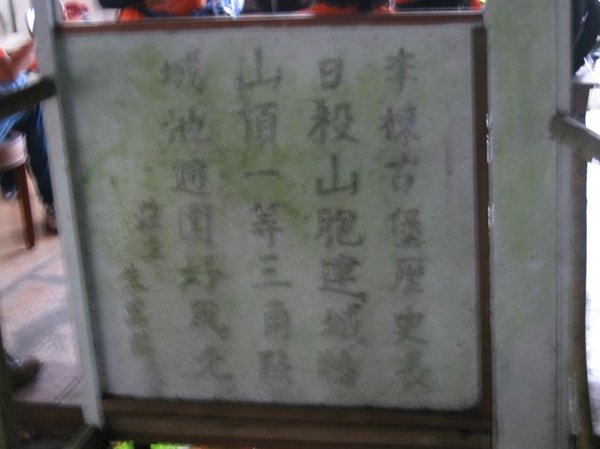 李棟古堡歷史長
日殺山胞建城牆
山頂一等三角點
城池週圍好風光